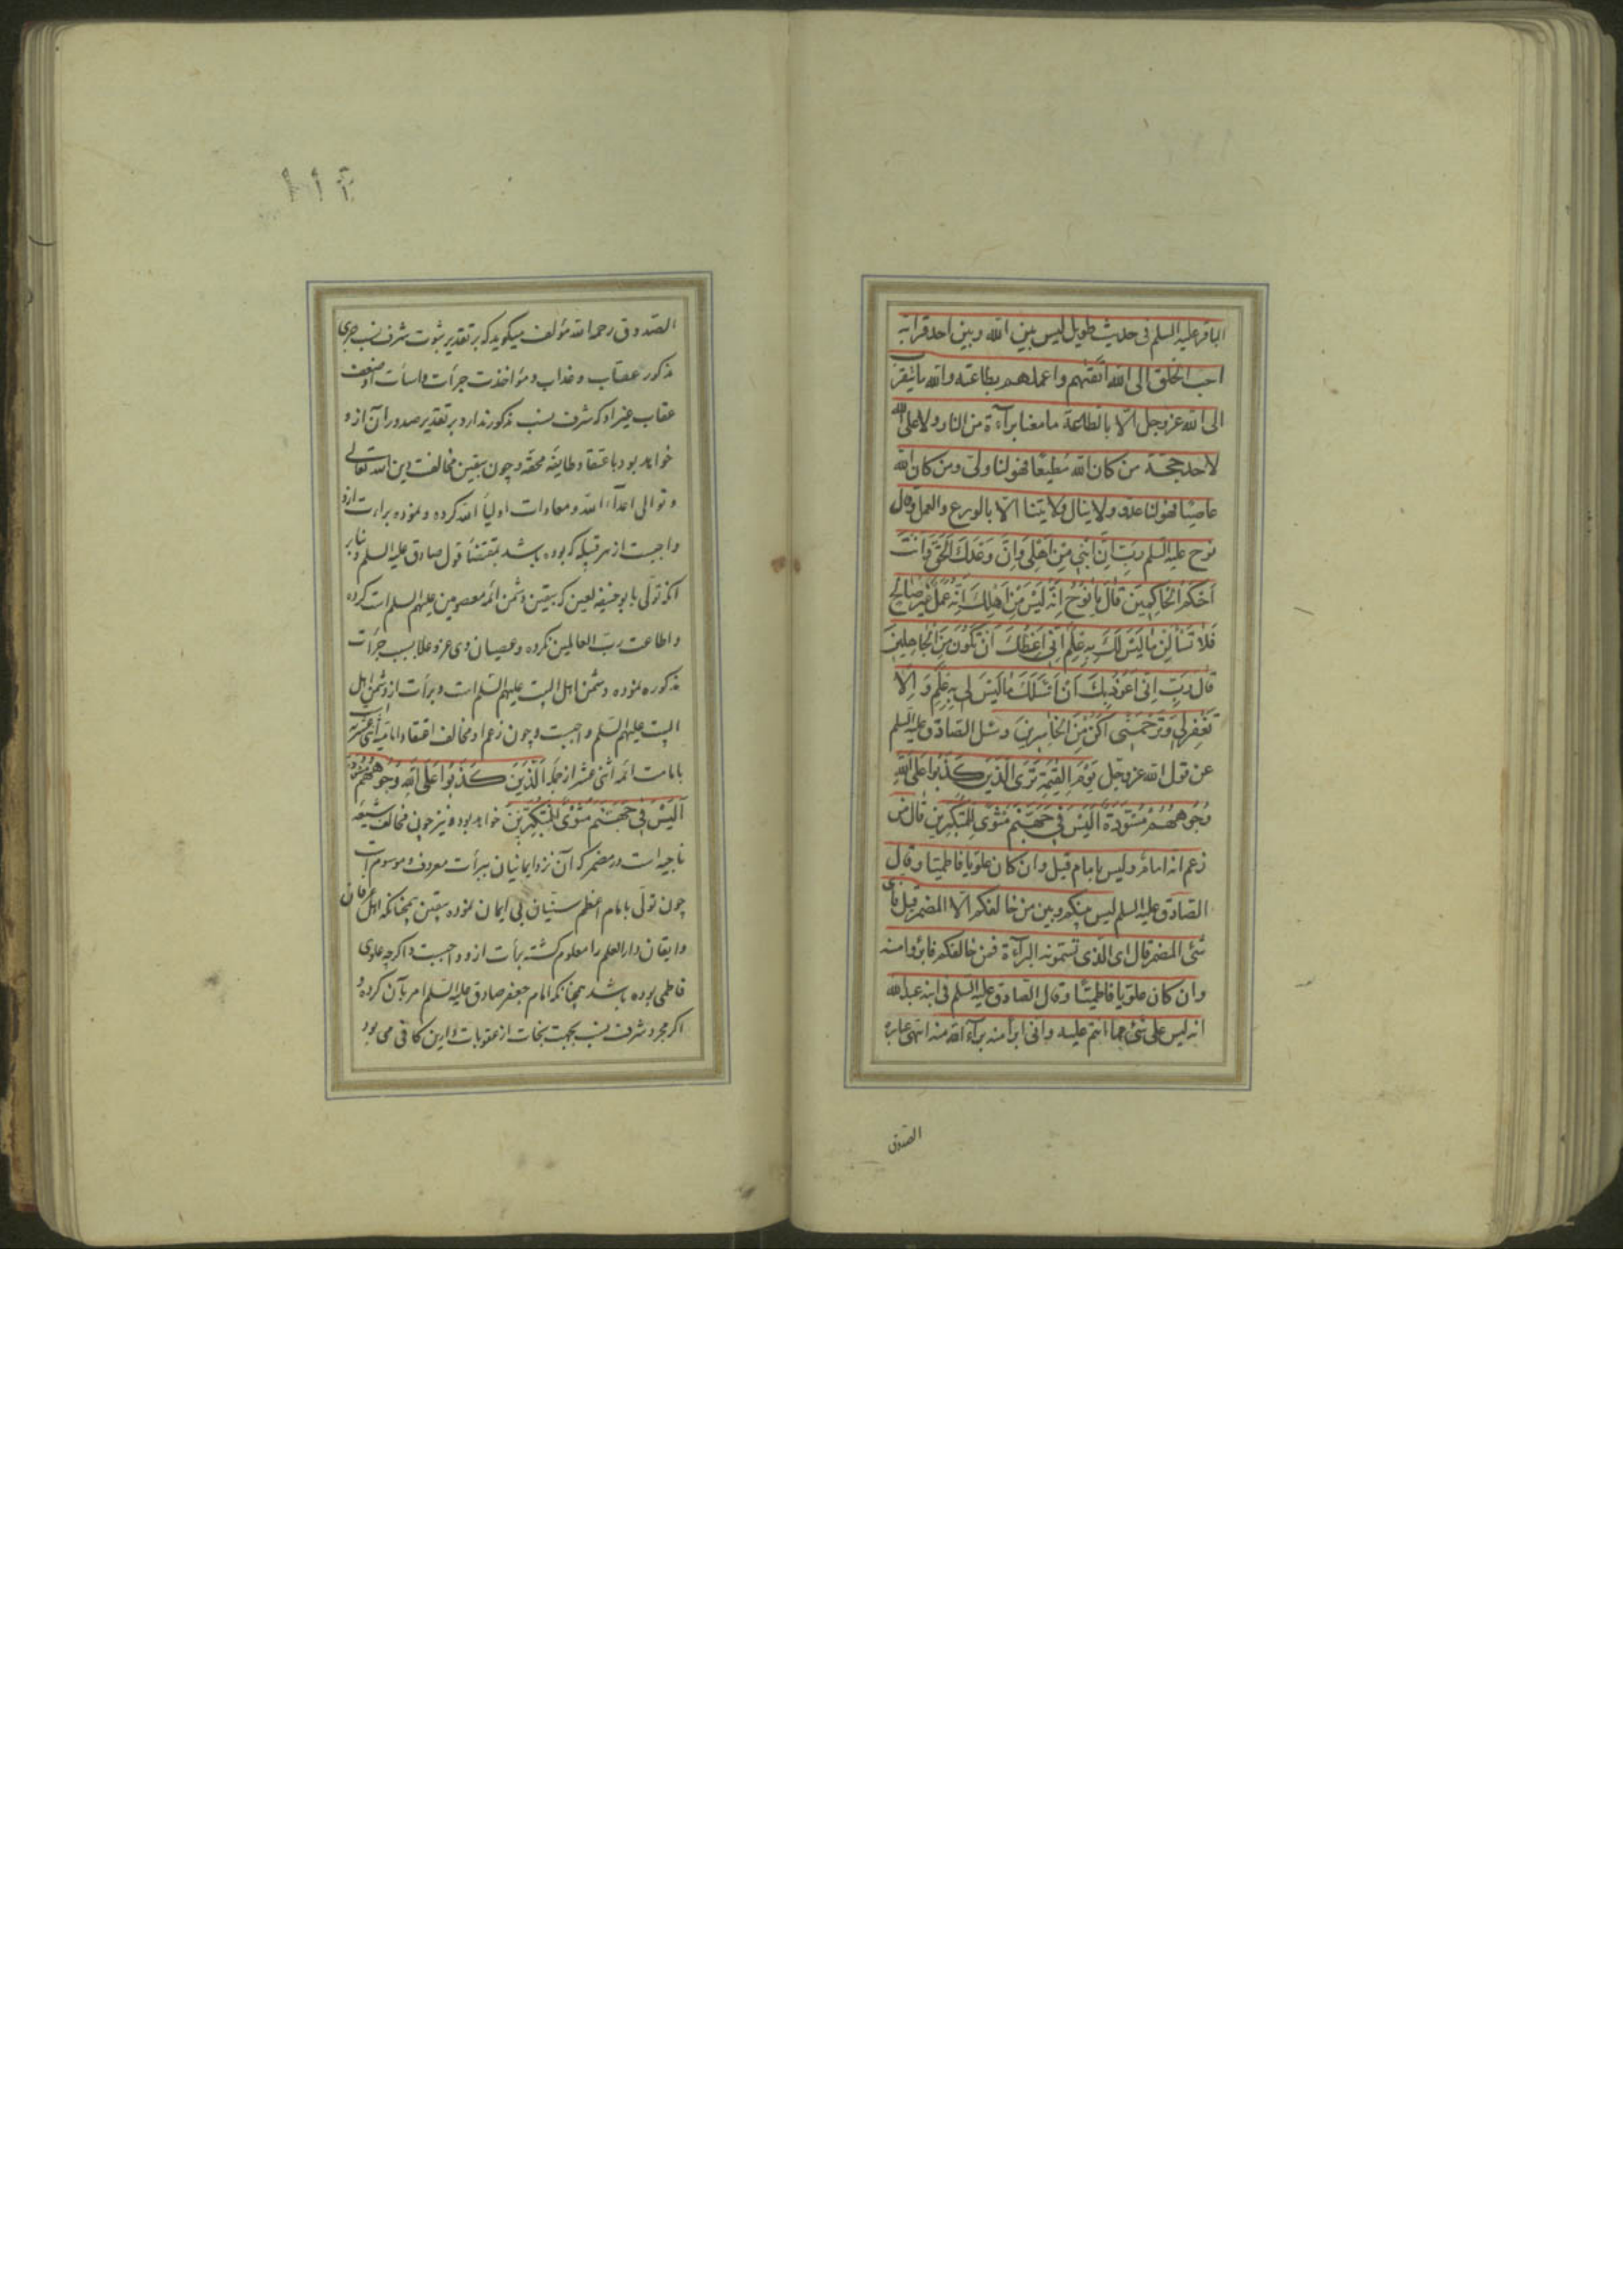 الباقر علیه السلم فی حدیث طویل لیس بین الله وبین احد قرابة
احب الخلق الی الله اتقیهم واعملهم بطاعته والله ما یتقرب
الی الله عز وجل الا بالطاعة ما معنا برآءة من النار ولا علی الله
لاحد حجة من کان الله مُطیعًا فهو لنا ولی ومن کان الله
عاصیًا فهو لنا عدو ولا ینال ولایتنا الا بالورع والعمل وقال
نوح علیه السلم رَبِّ اِنَّ ابْنی مِنْ اَهْلی وَاِنَّ وَعْدَكَ الْحَقُّ وَاَنْتَ
اَحْکَمُ الْحاکِمینَ قالَ یا نُوحُ اِنَّهُ لَیْسَ مِنْ اَهْلِكَ اِنَّهُ عَمَلٌ غَیْرُ صالِحٍ
فَلا تَسْأَلْنِ ما لَیْسَ لَكَ بِهِ عِلْمٌ اِنّی اَعِظُكَ اَنْ تَکُونَ مِنَ الْجاهِلینَ
قالَ رَبِّ اِنّی اَعُوذُ بِكَ اَنْ اَسْئَلَكَ ما لَیْسَ لی بِهِ عِلْمٌ وَ اِلّا
تَغْفِرْ لی وَتَرْحَمْنی اَکُنْ مِنَ الْخاسِرینَ وسئل الصادق علیه السلم
عن قول الله عز وجل یَوْمَ الْقِیمَةِ تَرَی الَّذینَ کَذَبُوا عَلَی اللهِ
وُجُوهُهُمْ مُسْوَدَّةٌ اَلَیْسَ فی جَهَنَّمَ مَثْوًی لِلْمُتَکَبِّرینَ قال من
زعم انه امام ولیس بامام قیل وان کان علویا فاطمیا وقال
الصادق علیه السلم لیس بینکم وبین من خالفکم الا المضمر قیل فای
شئ المضمر قال ای الذی تسمونه البرآءة فمن خالفکم فابرؤا منه
وان کان علویا فاطمیًا وقال الصادق علیه السلم فی ابنه عبدالله
انه لیس علی شئ مما انتم علیه وانی ابرأ منه برأء الله منه انتهی عبارة
الصدوق
الصدوق رحمه الله مؤلف میکوید که بر تقدیر ثبوت شرف نسب جری
مذکور عقاب و عذاب و مؤاخذت جرأت و اسأت او ضعف
عقاب غیر او که شرف نسب مذکور ندارد بر تقدیر صدور آن از و
خواهد بود باعتقاد طایفه محقه و چون بیقین مخالفت دین الله تعالی
و توالی اعدآء الله و معادات اولیأ الله کرده و نموده براءت از و
واجبست از هر قبیله که بوده باشد بمقتضا قول صادق علیه السلم و بنابر
آنکه تولی بابو حنیفه لعین که بیقین دشمن ائمه معصومین علیهم السلم است کرده
و اطاعت رب العالمین نکرده و عصیان وی عز و علا بسبب جرأت
مذکوره نموده دشمن اهل البیت علیهم السلم است و برأت از دشمن اهل
البیت علیهم السلم واجبست و چون زعم او مخالف اعتقاد امامیه اثنی عشریه است
بامامت ائمه اثنی عشر از جمله الَّذینَ کَذَبُوا عَلَی اللهِ وُجُوهُهُمْ مُسْوَدَّةٌ
اَلَیْسَ فی جَهَنَّمَ مَثْوًی لِلْمُتَکَبِّرینَ خواهد بود و نیز چون مخالف شیعه
ناجیه است در مضمر که آن نزد ایمانیان ببرأت معروف و موسوم است
چون تولی بامام اعظم سنیان بی ایمان نموده بیقین چنانکه اهل عرفان
و ایقان دار العلم را معلوم کشته برأت از و واجبست و اکرچه علوی
فاطمی بوده باشد چنانکه امام جعفر صادق علیه السلم امر بآن کرده و
اکر مجرد شرف نسب بجهت نجات از عقوبات دارین کافی می بود